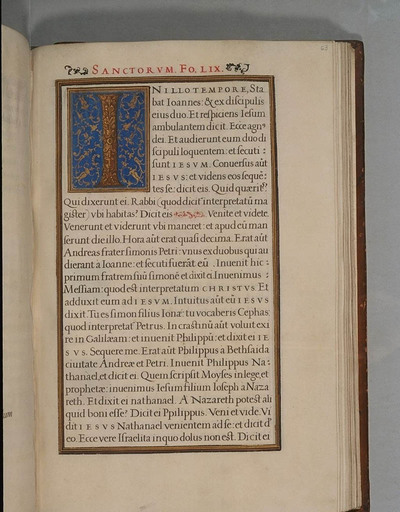 SANCTORVM. FO. LIX.
IN ILLO TEMPORE, Sta
bat Ioannes: & ex discipulis
eius duo. Et respiciens Iesum
ambulantem dicit. Ecce agn9
dei. Et audierunt eum duo di
scipuli loquentem: et secuti :
sunt IESVM. Conuersus aūt
IESVS: et videns eos sequē:
tes se: dicit eis. Quid quæritis?
Qui dixerunt ei. Rabbi (quod dicit interpretatū ma
gister) vbi habitas? Dicit eis Venite et videte.
Venerunt et viderunt vbi maneret: et apud eū man
serunt die illo. Hora aūt erat quasi decima. Erat aūt
Andreas frater simonis Petri: vnus ex duobus qui au
dierant a Ioanne: et secuti fuerāt eū. Inuenit hic:
primum fratrem suū simonē et dixit ei. Inuenimus:
Messiam: quod est interpretatum CHRISTVS Et
adduxit eum ad IESVM. Intuitus aūt eū IESVS
dixit. Tu es simon filius Iona: tu vocaberis Cephas:
quod interpretat Petrus. In crastinū aūt voluit exi
re in Galilæam: et inuenit Philippū: et dixit ei IE
SVS. Sequere me. Erat aūt Philippus a Bethsaida
ciuitate Andreæ et Petri. Inuenit Philippus Na:
thanael, et dicit ei. Quem scripsit Moyses in lege, et
prophetæ: inuenimus Iesum filium Ioseph a Naza
reth. Et dixit ei nathanael. A Nazareth potest ali
quid boni esse? Dicit ei Philippus. Veni et vide. Vi
dit IESVS Nathanael venientem ad se: et dicit d'
eo. Ecce vere Israelita in quo dolus non est. Dicit ei